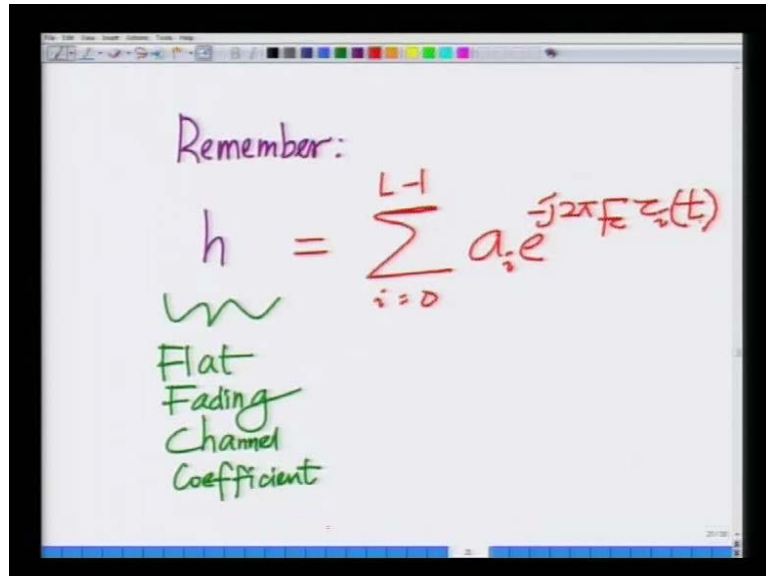 File Edit View Insert Actions Tools Help
Remember:
L-1
h = ∑ a_i e^{-j2πF_c τ_i(t)}
i=0
Flat
Fading
Channel
Coefficient